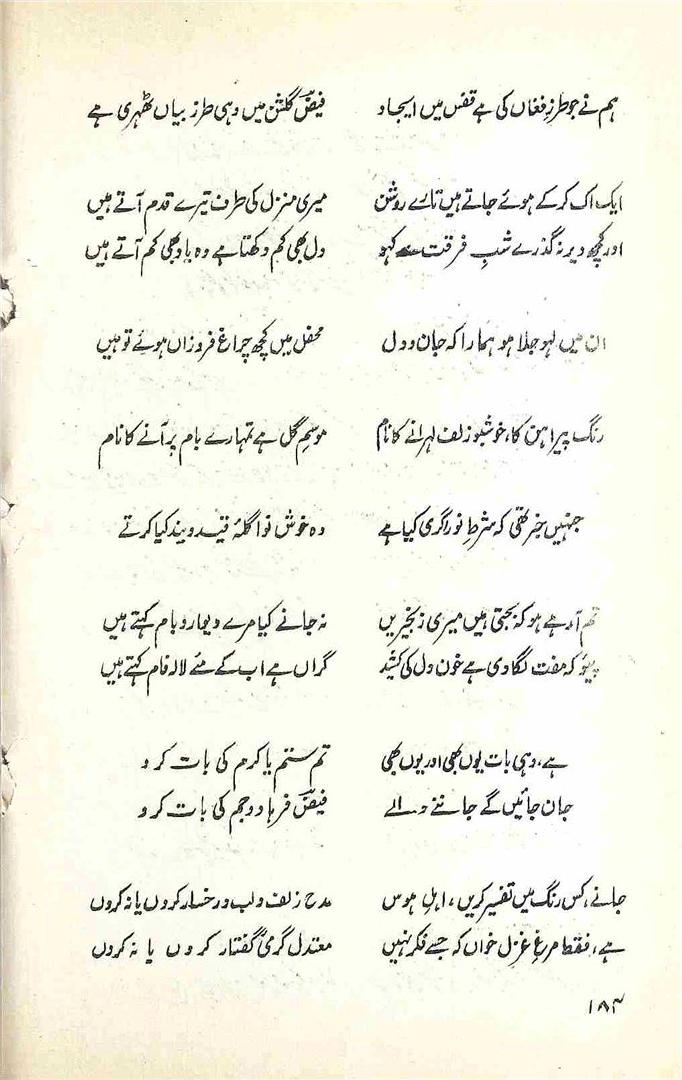 ہم نے جو طرزِ فغاں کی ہے قفس میں ایجاد فیضؔ گلشن میں وہی طرزِ بیاں ٹھہری ہے
ایک اک کر کے ہوئے جاتے ہیں تارے روشن میری منزل کی طرف تیرے قدم آتے ہیں
اور کچھ دیر نہ گذرے شبِ فرقت سے کہو دل بھی کم دکھتا ہے وہ یاد بھی کم آتے ہیں
ان میں لہو جلا ہو ہمارا کہ جان و دل محفل میں کچھ چراغ فروزاں ہوئے تو ہیں
رنگ پیراہن کا، خوشبو زلف لہرانے کا نام موسمِ گل ہے تمہارے بام پر آنے کا نام
جنہیں خبر تھی کہ شرطِ نوراگری کیا ہے وہ خوش نوا گلۂ قید و بند کیا کرتے
تم آرہے ہو کہ بجتی ہیں میری زنجیریں نہ جانے کیا مرے دیوار و بام کہتے ہیں
پیئو کہ مفت لگا دی ہے خونِ دل کی کشید گراں ہے اب کے مئے لالہ فام کہتے ہیں
ہے، وہی بات یوں بھی اور یوں بھی تم ستم یا کرم کی بات کرو
جان جائیں گے جاننے والے فیضؔ فرہاد و جم کی بات کرو
جانے، کس رنگ میں تفسیر کریں، اہلِ ہوس مدحِ زلف و لب و رخسار کروں یا نہ کروں
ہے، فقط مرغِ غزل خواں کہ جسے فکر نہیں معتدل گرمیٔ گفتار کروں یا نہ کروں
۱۸۳